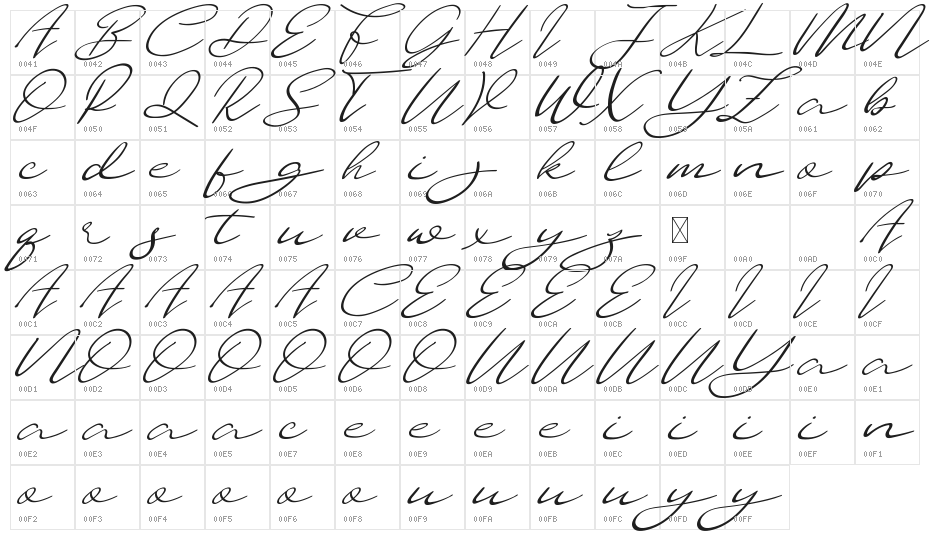 A B C D E F G H I J K L M N
0041 0042 0043 0044 0045 0046 0047 0048 0049 004A 004B 004C 004D 004E
O P Q R S T U V W X Y Z a b
004F 0050 0051 0052 0053 0054 0055 0056 0057 0058 0059 005A 0061 0062
c d e f g h i j k l m n o p
0063 0064 0065 0066 0067 0068 0069 006A 006B 006C 006D 006E 006F 0070
q r s t u v w x y z A
0071 0072 0073 0074 0075 0076 0077 0078 0079 007A 009F 00A0 00AD 00C0
A A A A A C E E E E I I I I
00C1 00C2 00C3 00C4 00C5 00C7 00C8 00C9 00CA 00CB 00CC 00CD 00CE 00CF
N O O O O O O U U U U Y a a
00D1 00D2 00D3 00D4 00D5 00D6 00D8 00D9 00DA 00DB 00DC 00DD 00E0 00E1
a a a a c e e e e i i i i n
00E2 00E3 00E4 00E5 00E7 00E8 00E9 00EA 00EB 00EC 00ED 00EE 00EF 00F1
o o o o o o u u u u y y
00F2 00F3 00F4 00F5 00F6 00F8 00F9 00FA 00FB 00FC 00FD 00FF